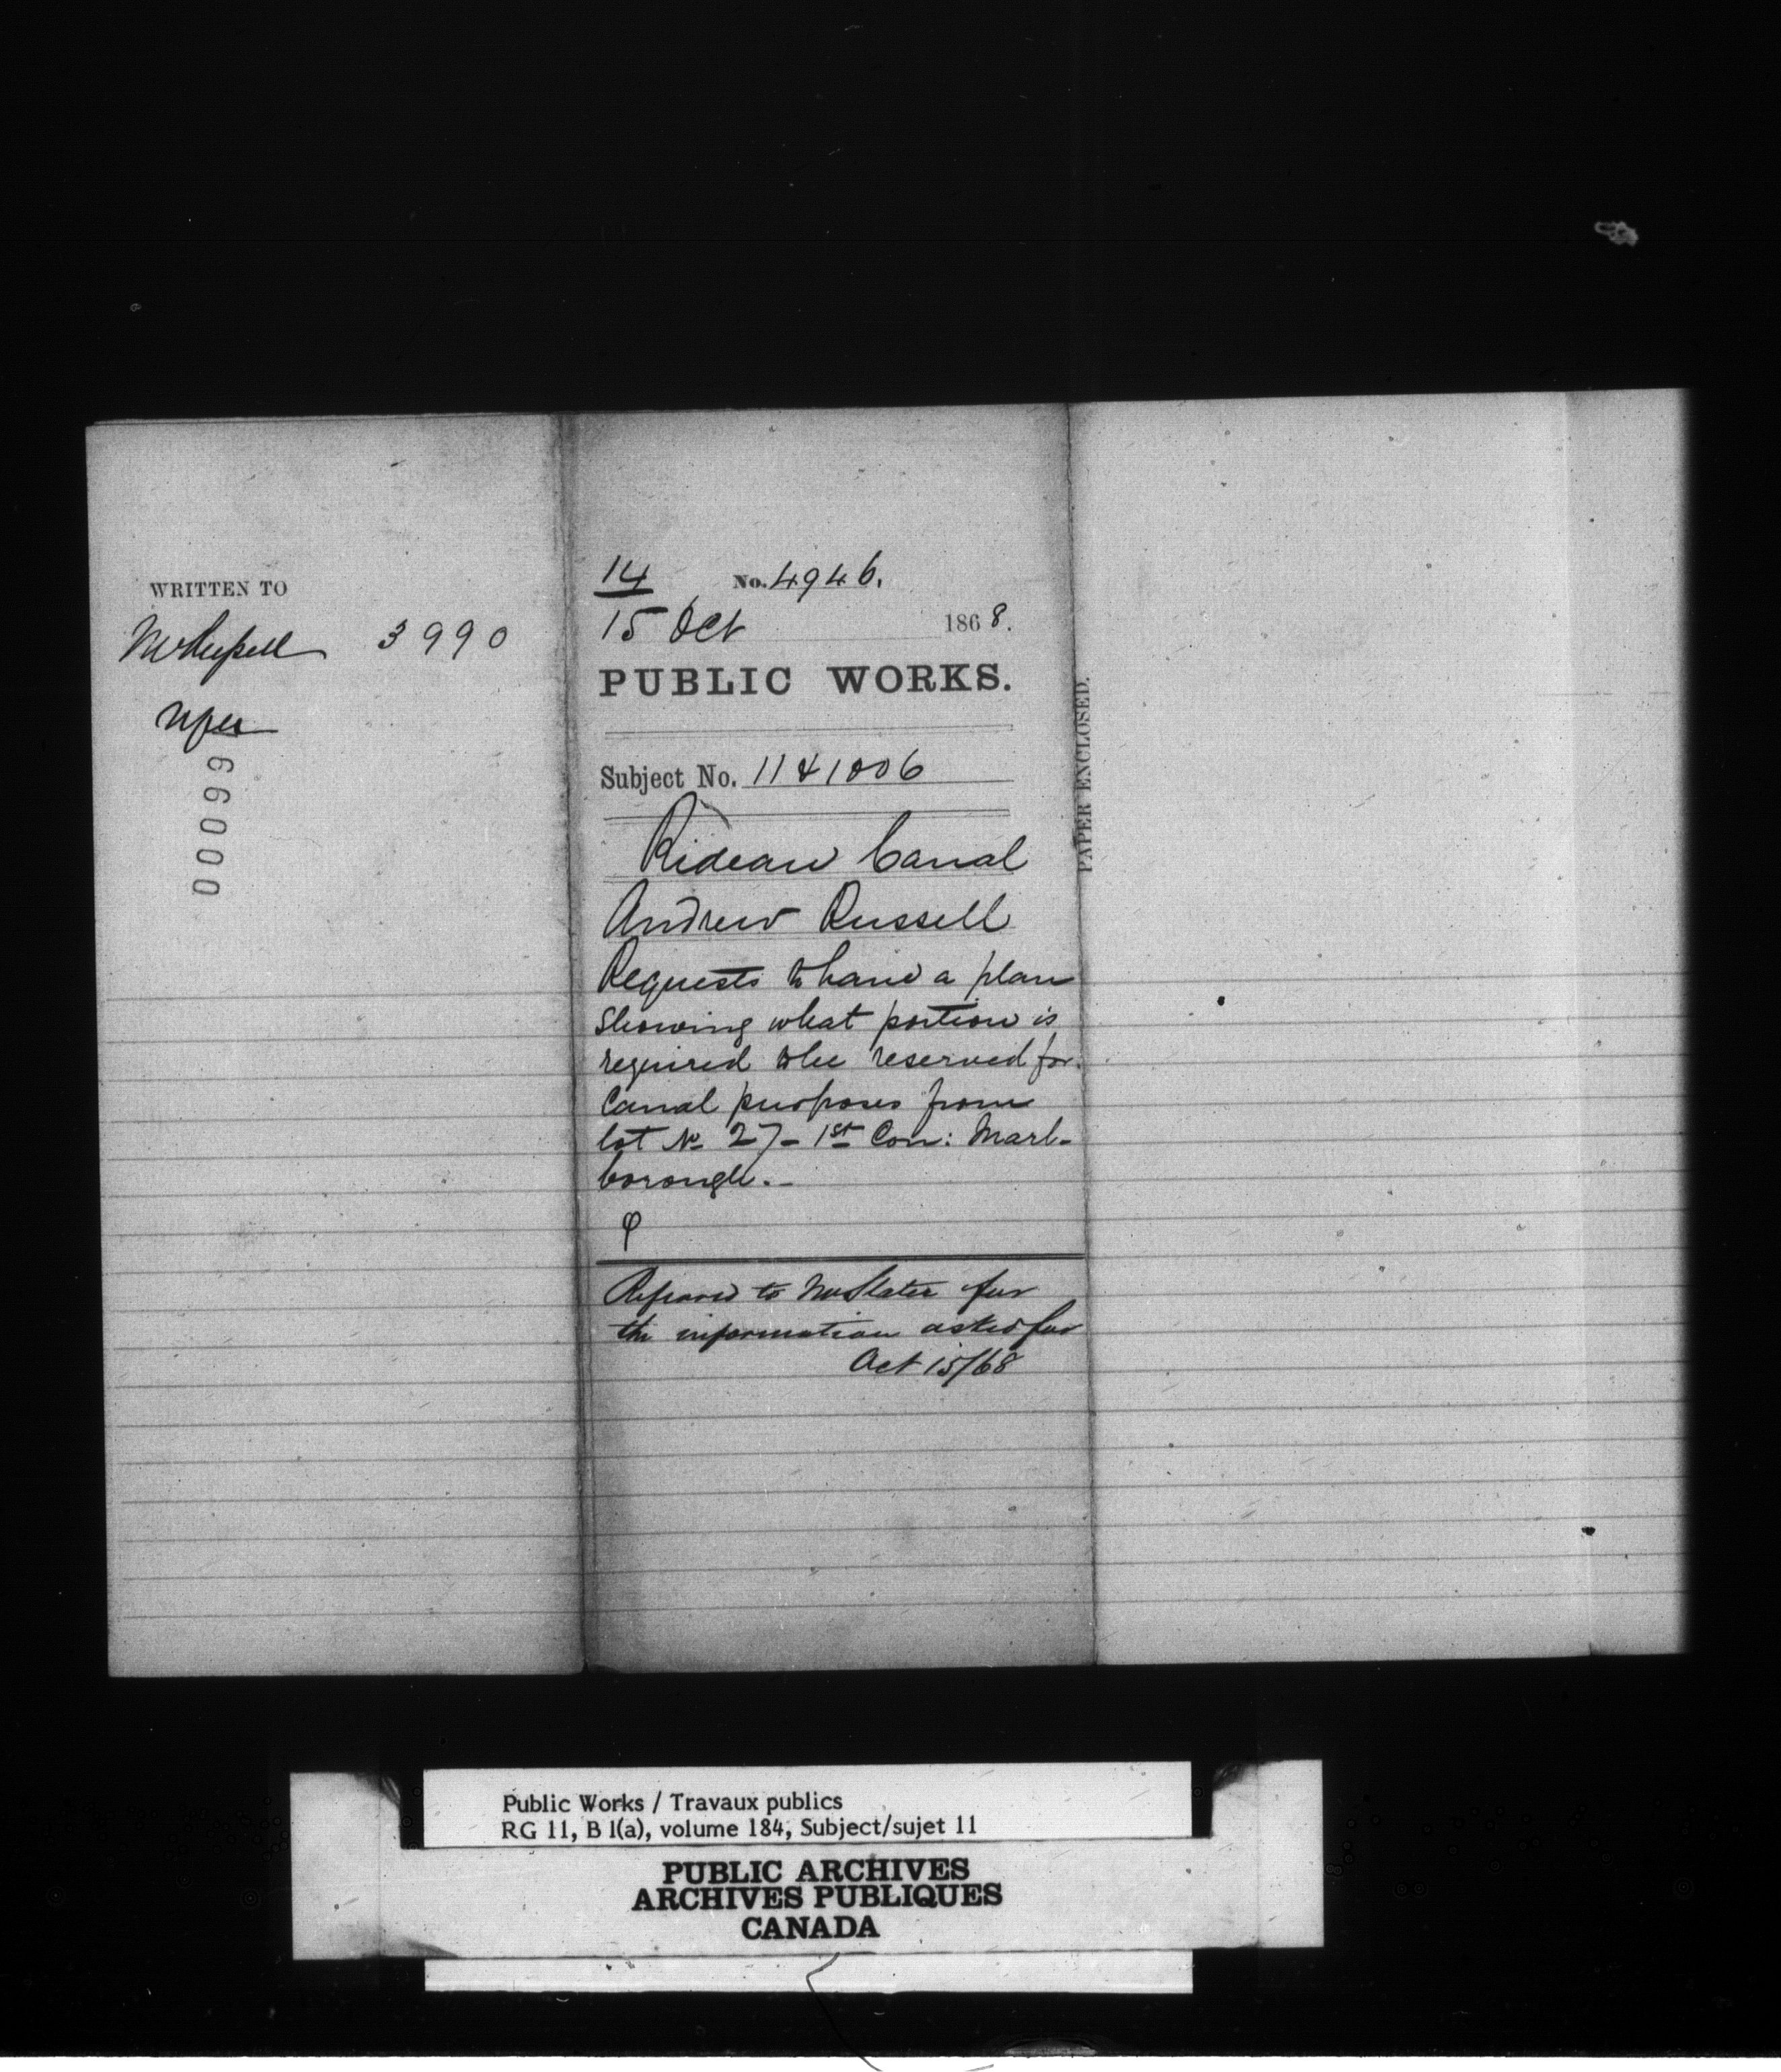 WRITTEN TO
Mr Russell 3990
00099
14
No. 4946.
15 Oct 1868.
PUBLIC WORKS.
Subject No. 11 & 1006
Rideau Canal
Andrew Russell
Requests to have a plan
showing what portion is
required to be reserved for
Canal purposes from
lot No 27 - 1st Con: Marl-
borough. -
Referred to Mr Slater for
the information asked for
Oct 15/68
PAPER ENCLOSED.
Public Works / Travaux publics
RG 11, B 1(a), volume 184, Subject/sujet 11
PUBLIC ARCHIVES
ARCHIVES PUBLIQUES
CANADA